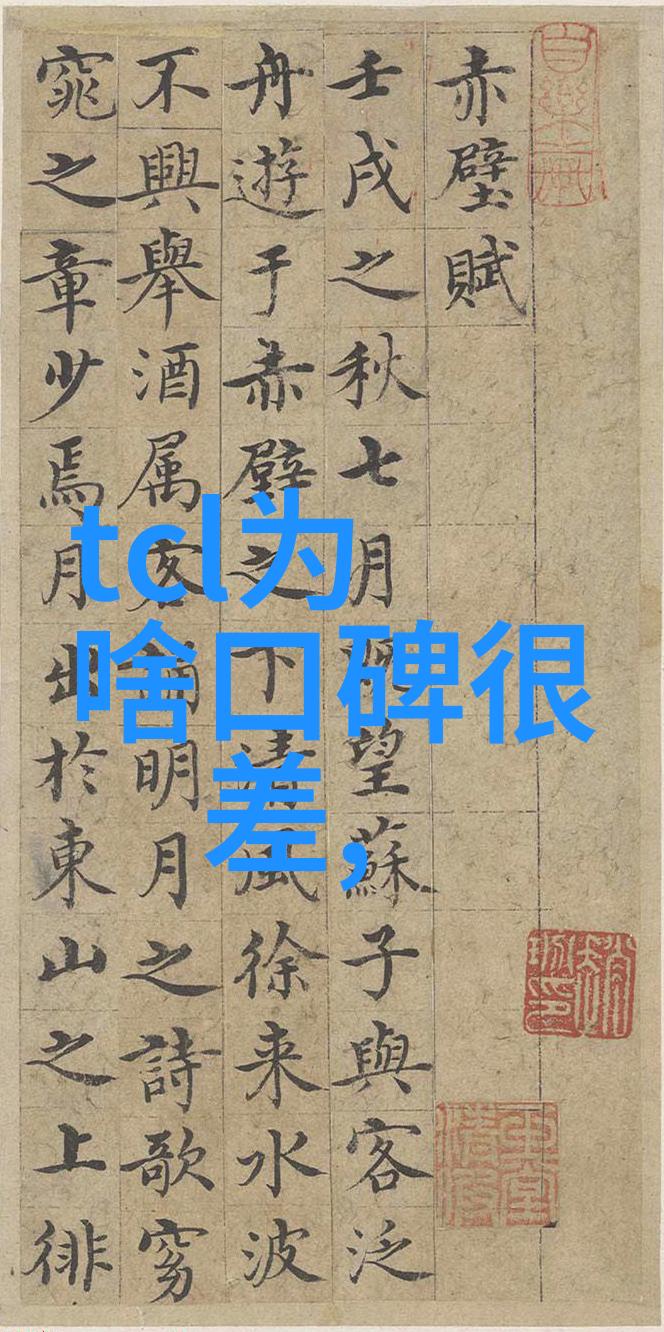 赤壁賦
壬戌之秋七月既望蘇子與客泛
舟遊于赤壁之下清風徐来水波
不興舉酒属客誦明月之詩歌窈
窕之章少焉月出於東山之上徘
tcl为
啥口碑很
差,